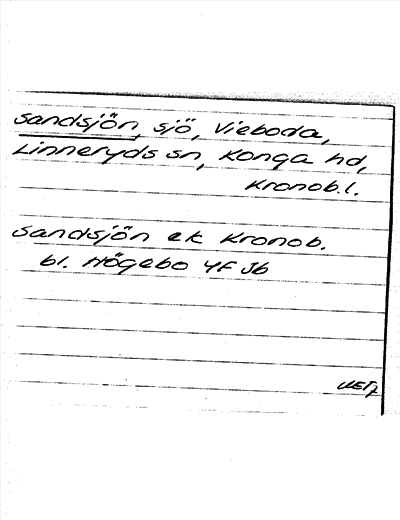 Sandsjön, sjö, Vieboda,
Linneryds sn, Konga hd,
Kronob.l.
Sandsjön ek Kronob.
bl. Högebo 4F Jb